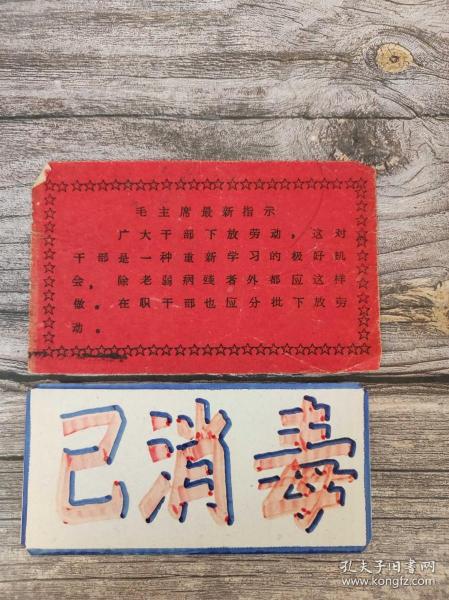 毛主席最新指示
广大干部下放劳动，这对
干部是一种重新学习的极好机
会，除老弱病残者外都应这样
做。在职干部也应分批下放劳
动。
已消毒
孔夫子旧书网
www.kongfz.com